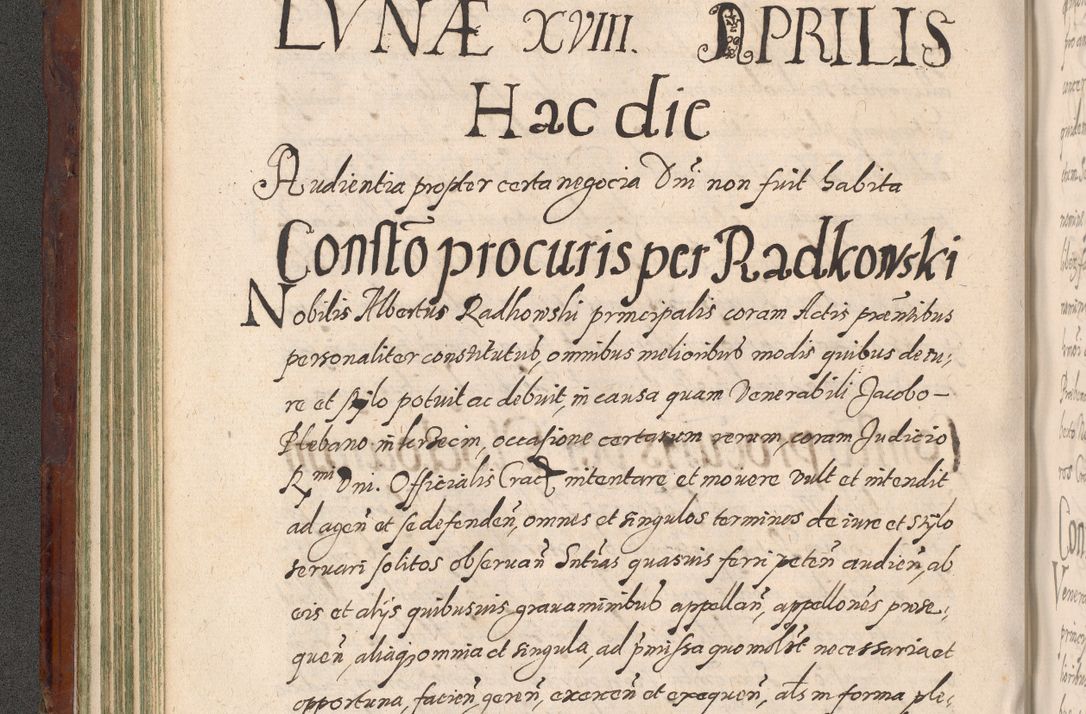 LVNÆ XVIII. APRILIS
Hac die
Audientia propter certa negocia Dni non fuit habita
Constō procuris per Radkowski
Nobilis Albertus Radkowski principalis coram Actis præntibus
personaliter constitutus, omnibus melioribus modis quibus de iu,
re et stylo potuit ac debuit, in causa quam Venerabili Jacobo
Plebano in occasione certarum rerum, coram Judicio
Rmi Dni. Officialis Crac intentare et movere vult et intendit
ad agen et se defenden, omnes et singulos terminos de iure et stylo
servari solitos observan Sntias quasvis ferri peten audien, ab
eis et alijs quibusvis gravaminibus appellan, appellones prose,
quen, aliaq, omnia et singula, ad pmissa quomolibt necessaria et
opportuna, facien, geren, exercen et exequen, als in forma ple,